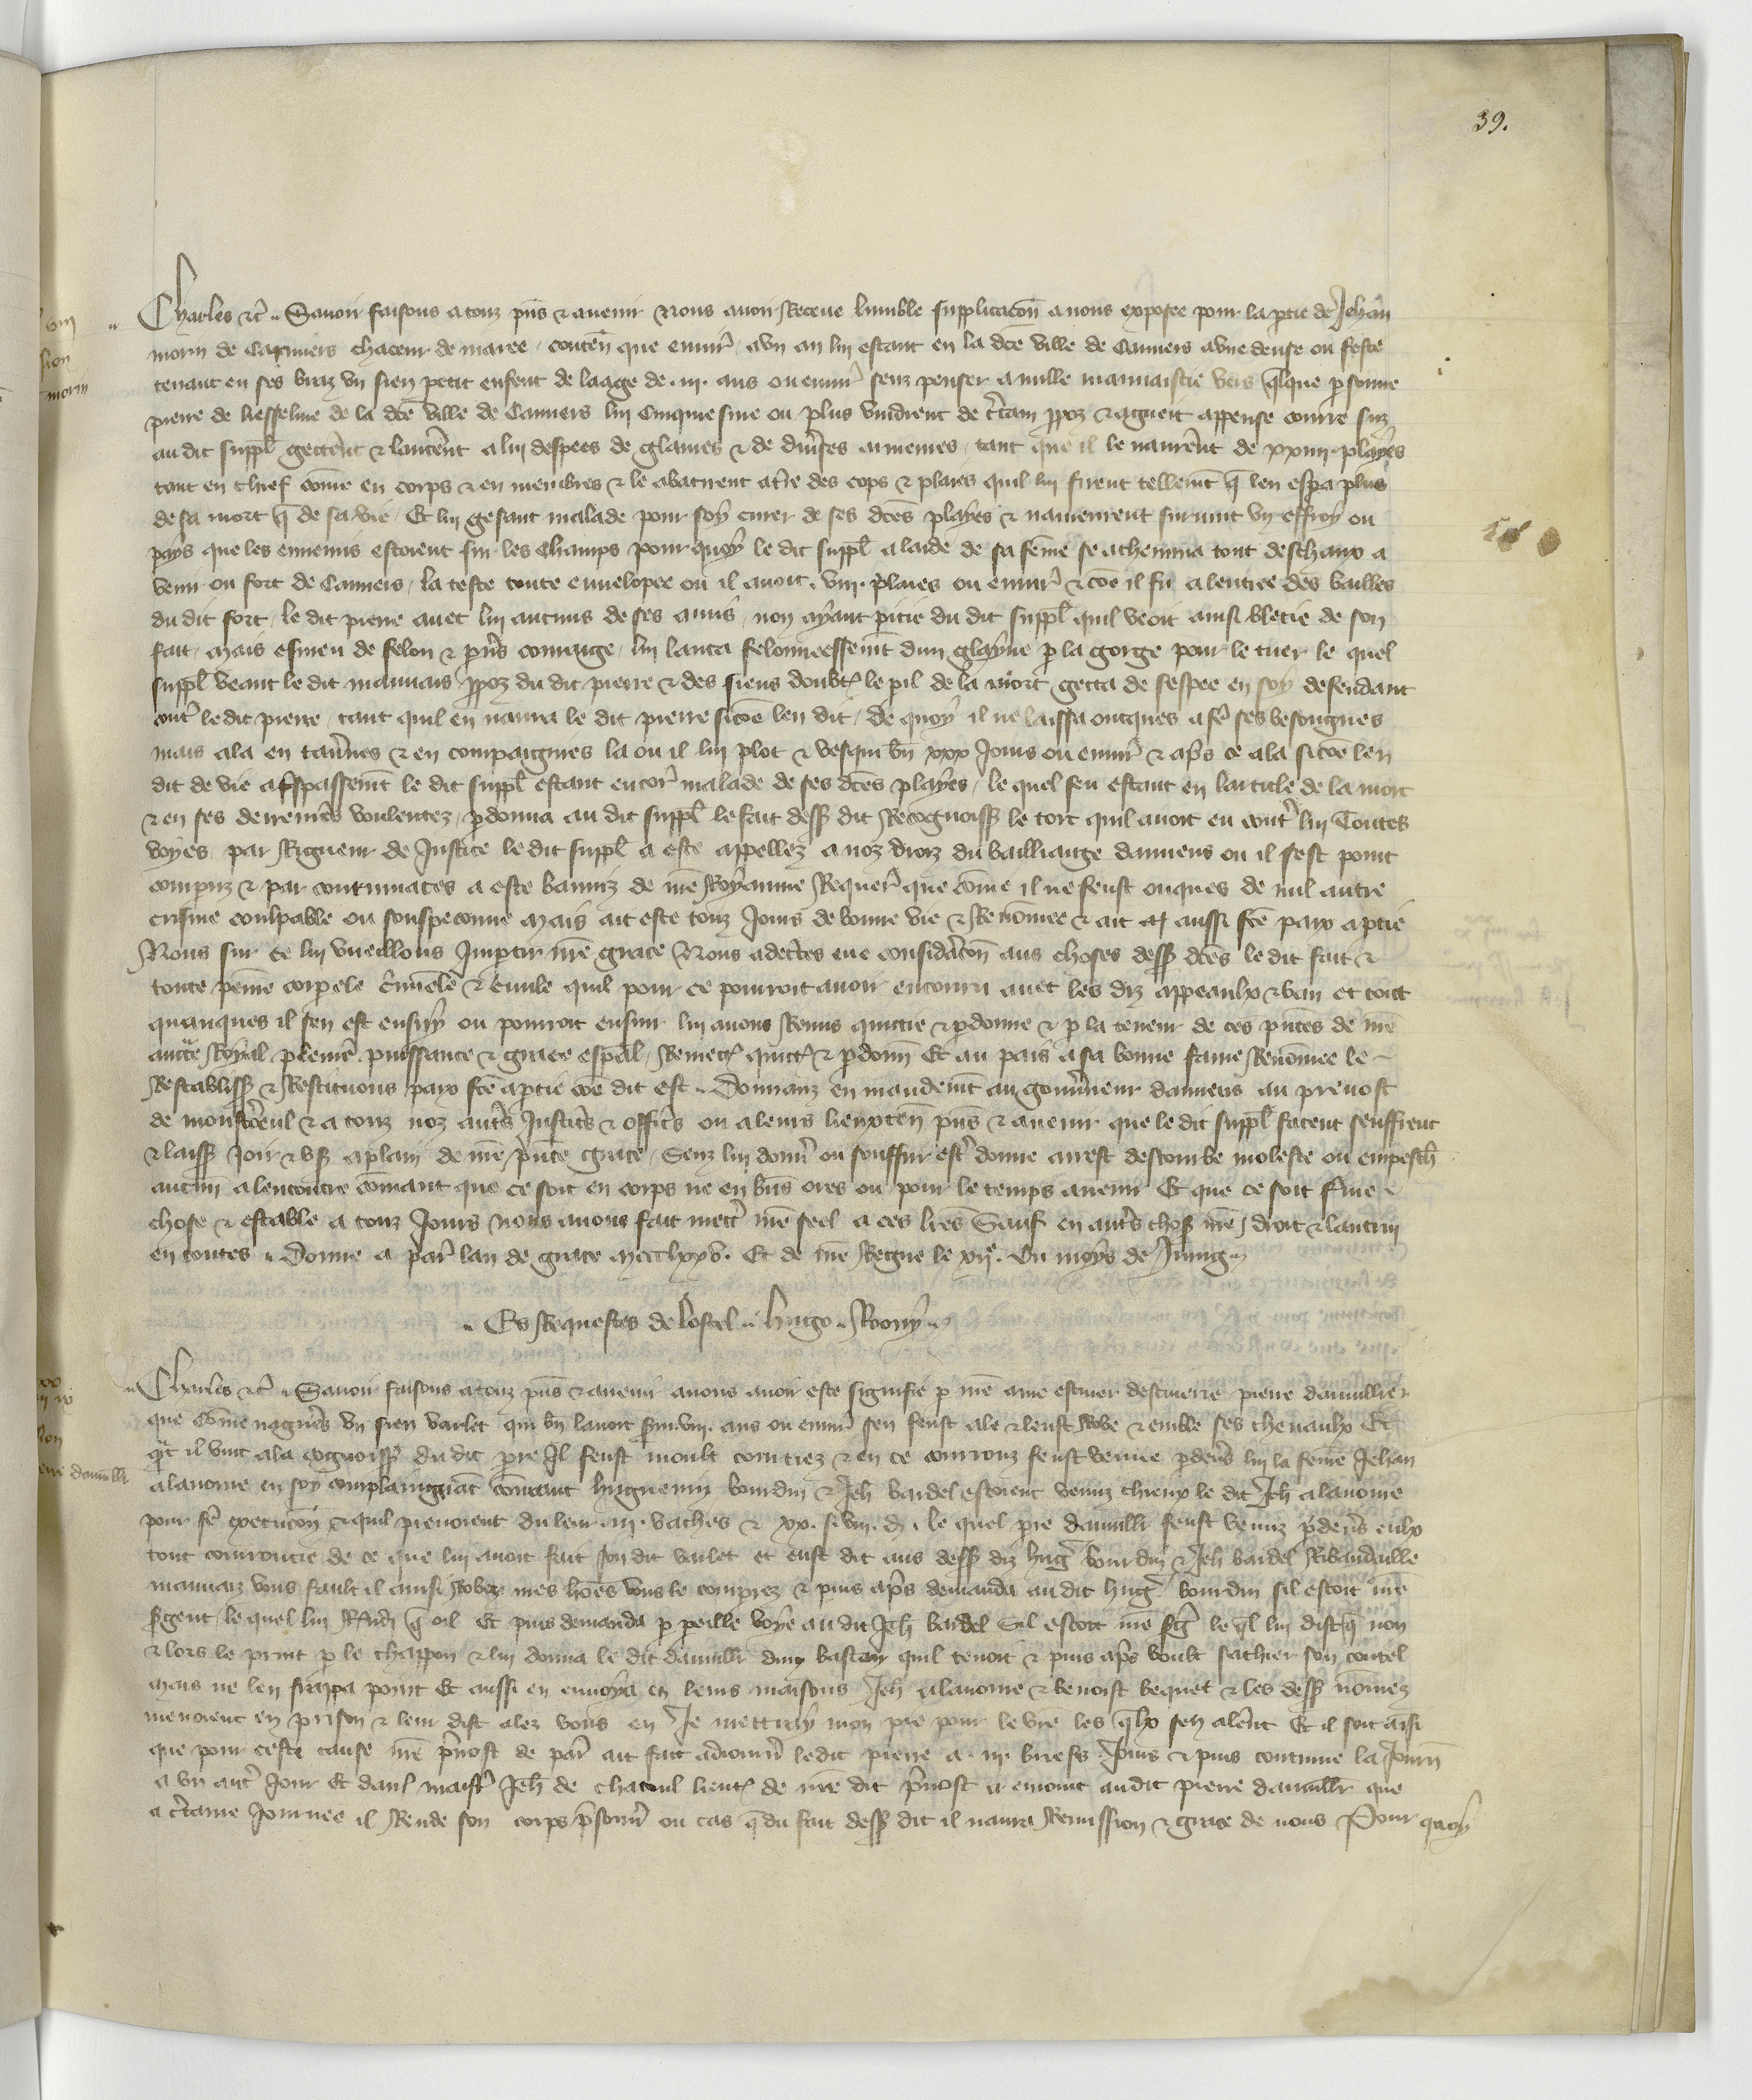 39.
Charles etc̃ Savoir faisons a touz pñs & avenir Nous avoir Receue lumble supplicacõn a nous exposee pour la ptie de Jehan
morin de Camiers chaceur de maree contenñ que envirõ a un an lui estant en la dcẽ ville de Camiers a une dense ou feste
tenant en ses braz un sien petit enfent de laage de .iii. ans ou envirõ senz penser a nulle mauvaistie vers qlque psonne
pierre de hesseline de la dcẽ ville de Camiers lui cinquiesme ou plus vindrent de ctain ppoz & agueit appense courre suz
au dit suppl gecterẽnt & lancerẽnt a lui despees de glaives & de divses armeures tant que il le navrerẽnt de xxiiii. playes
tant en chief com̃e en corps & en membres & le abatirent a tre des cops & plaies quil lui firent tellemt q̃ len espa plus
de sa mort q̃ de sa vie Et lui gesant malade pour soy curer de ses dcẽs playes & navreures survint un effroy ou
pays que les ennemis estoient sur les champs pour quoy le dit suppl a laide de sa fem̃e se achemina tout deschaux a
venir ou fort de Camiers la teste toute envelopee ou il avoit .viii. plaies ou envirõ & cõe il fu a lentree des bailles
du dit fort le dit pierre avec lui aucuns de ses amis non ayant pitie du dit suppl quil veoit ainsi blecie de son
fait Mais esmeu de felon & pvs courage lui lanca felonneessemt dun glayve p la gorge pour le tuer le quel
suppl veant le dit mauvais ppoz du dit pierre & des siens doubt le pil de la mort gecta de sespee en soy defendant
contr̃ le dit pierre tant quil en navra le dit pierre sicõe len dit de quoy il ne laissa oncques a fẽ ses besongnes
mais ala en tav̾nes & en compaignies la ou il lui plot & vesqui bñ xxx jours ou envirõ & aps ce ala sicõe len
dit de vie a tspassemt le dit suppl estant encor̃ malade de ses dcẽs playes le quel feu estant en larticle de la mort
& en ses derrenieŕs voulentez pdonna au dit suppl le fait dess dit Recognoiss le tort quil avoit eu contr̃ lui Toutes
voyes par Rigueur de Justice le dit suppl a este appellez a noz droiz du bailliage damiens ou il sest point
compuz & par contumaces a este banniz de nrẽ Royaume Requer̃ que com̃e il ne feust onques de nul autre
crisme coulpable ou souspeconne Mais ait este touz jours de bonne vie & Renom̃ee & ait aussi fcẽ paix a ptie
Nous sur ce lui vueillons Imptir nrẽ grace Nous adcẽrtes eue consideracõn aus choses dess dcẽs le dit fait &
toute peine corporele crim̃ele & civile quil pour ce pourroit avoir encouru avec les diz appeaulx & ban et tout
quanques il sen est ensuy ou pourroit ensuir lui avons Remis quictie & pdonne & p la teneur de ces pntes de nrẽ
auctẽ Royal pleniere puissance & grace espal Remect quict & pdonñ Et au pais a sa bonne fame Renom̃ee le
Restabliss & Restituons paix fcẽ a ptie cõe dit est Donnanz en mandemt au gouvneur damiens au prevost
de monstereul & a touz noz autẽs Justicẽs & officẽs ou a leurs lieuxtenñ pñs & avenir que le dit suppl facent seuffrent
& laiss joir & us a plain de nrẽ pntẽ grace Senz lui donnẽ ou souffrir estrẽ donne arrest destourbe moleste ou empesch
aucun a lencontre com̃ant que ce soit en corps ne en biens ores ou pour le temps avenir Et que ce soit ferme
chose & estable a touz jours nous avons fait mectrẽ nrẽ seel a ces lrẽs Sauf en autẽs chos nrẽ droit & lautrui
en toutes Donne a pařis lan de grace mccclxxv. Et de nrẽ Regne le xiie. Ou moys de Juing
Es Requestes de lostel Hugo Rooy
Charles etc̃ Savoir faisons a touz pñs & avenir a nous avoir este signifie p nrẽ ame escuier descuierie pierre damillier
que com̃e naguerẽs un sien varlet qui bñ lavoit servi .vii. ans ou envirõ sen feust ale & leust Robe & emble ses chevaulx Et
qt il vint a la cognoiss du dit pre Il feust moult courciez & en ce courrouz feust venue pdevs lui la fem̃e Jehan
alanome en soy complaingnãt com̃ant huguenin bourdin & Jeh bardel estoient venuz chieux le dit Jeh alanome
pour fẽ execucõn & quil prenoient du leur .iii. vaches & xx. s. viii. d. le quel pre damilli feust venuz pdevs eulx
tout courroucie de ce que lui avoit fait son dit varlet et eust dit aus dess diz hug bourdin & Jeh bardel Ribaudaille
mauvaiz vous fault il ainsi Rober mes hoẽs vous le comprez & puis aps demanda au dit hug bourdin sil estoit nrẽ
sgent le quel lui Rñdi q̃ oil Et puis demanda p peille voye au dit Jeh bardel Sil estoit nrẽ sg le ql lui dist q̃ non
& lors le print p le chappon & lui donna le dit damilli dun baston quil tenoit & puis aps voult sachier son coutel
Mais ne len frappa point Et aussi en envoya en leurs maisons Jeh alanome & benoist bequet & les dess nom̃ez
menoient en prison & leur dist alez vous en Je mectray mon pre pour le vrẽ les qlx sen alerẽnt Et il soit ainsi
que pour ceste cause nrẽ pvost de pařis ait fait adiournẽ le dit pierre a .iii. briefs jours & puis continue la journ
a un autrẽ jour Et dault maistrẽ Jeh de chatoul lieut de nrẽ dit pvost a enjoint au dit pierre damilli que
a ctaine journee il Rende son corps psonnẽ ou cas q̃ du fait dess dit il naura Remission & grace de nous Pour quoy